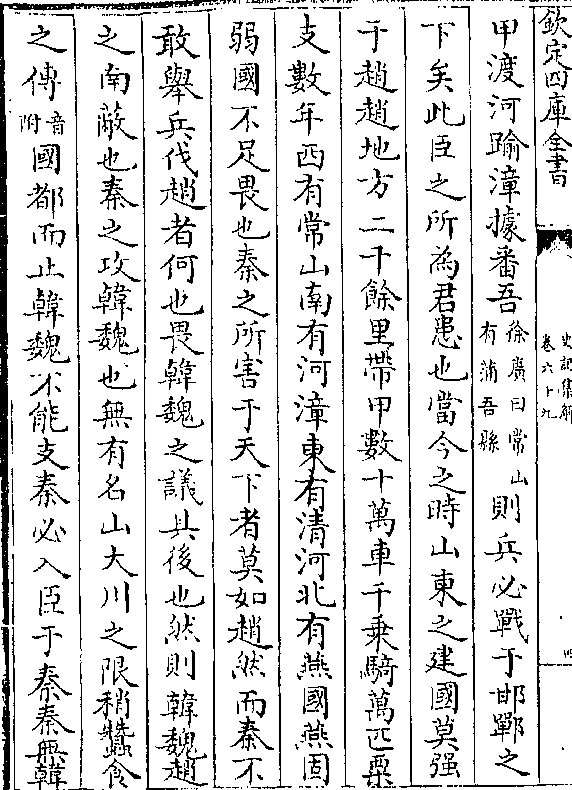 欽定四庫全書
史記集解
卷六十九
四
甲渡河踰漳據番吾徐廣曰常山有蒲吾縣則兵必戰于邯鄲之
下矣此臣之所為君患也當今之時山東之建國莫强
于趙趙地方二千餘里帶甲數十萬車千乗騎萬匹粟
支數年西有常山南有河漳東有清河北有燕國燕固
弱國不足畏也秦之所害于天下者莫如趙然而秦不
敢舉兵伐趙者何也畏韓魏之議其後也然則韓魏趙
之南蔽也秦之攻韓魏也無有名山大川之限稍蠶食
之傳音附國都而止韓魏不能支秦必入臣于秦秦無韓